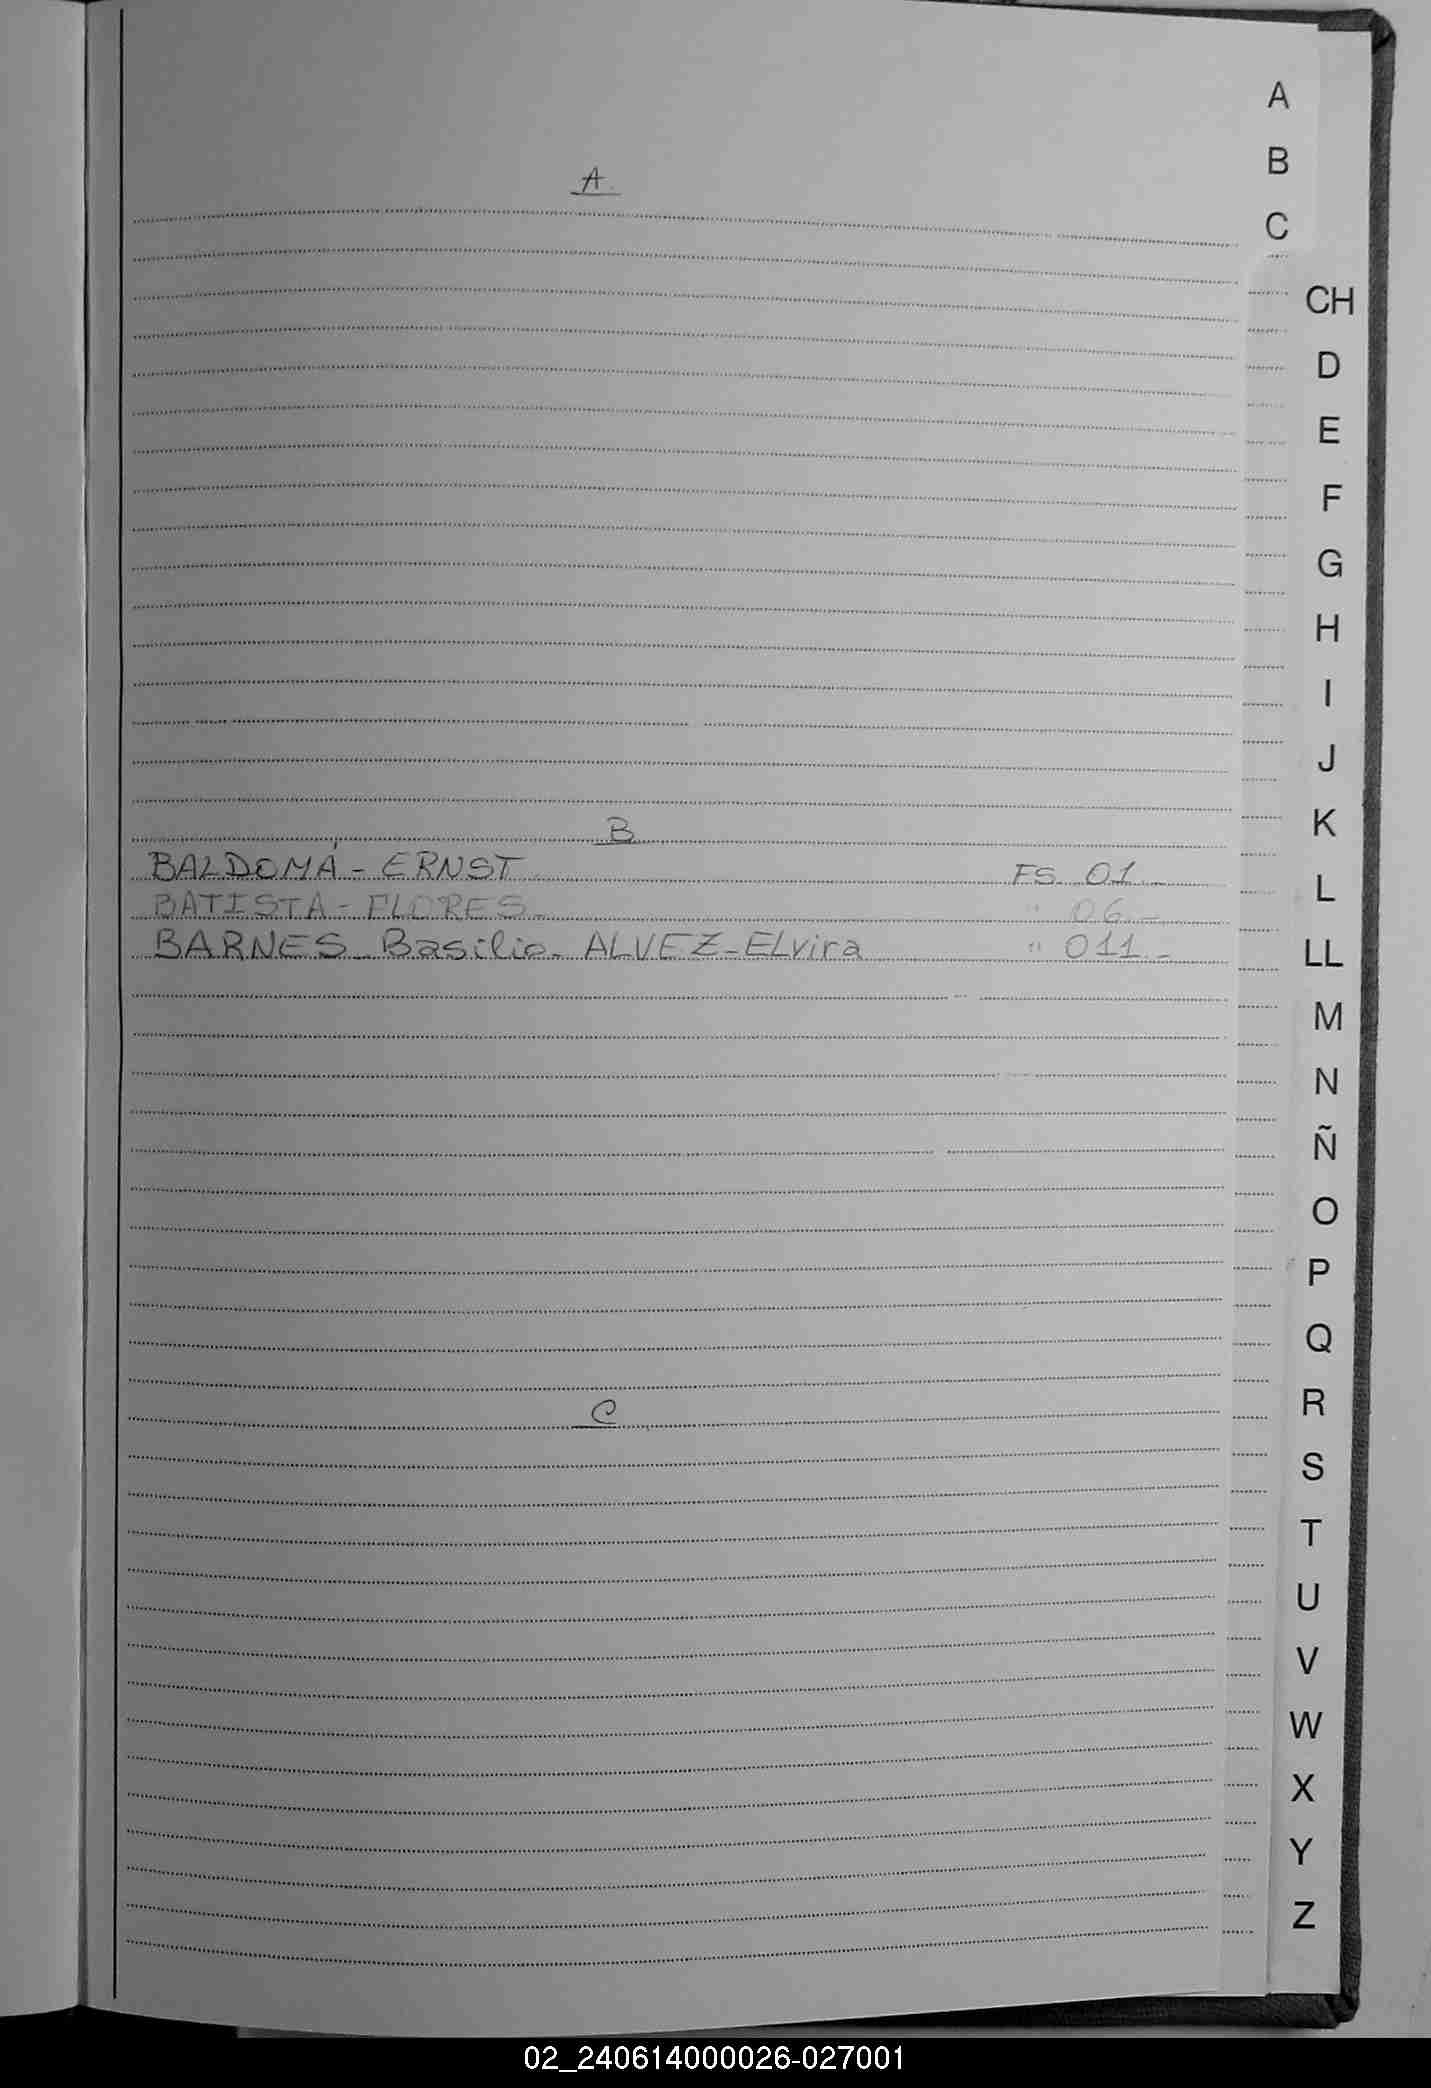 A
B
C
CH
D
E
F
G
H
I
J
K
L
LL
M
N
Ñ
O
P
Q
R
S
T
U
V
W
X
Y
Z
A.
B
BALDOMÁ - ERNST FS. 01.-
BATISTA - FLORES. " 06.-
BARNES - Basilio - ALVEZ - ELvira " 011.-
C
02_240614000026-027001